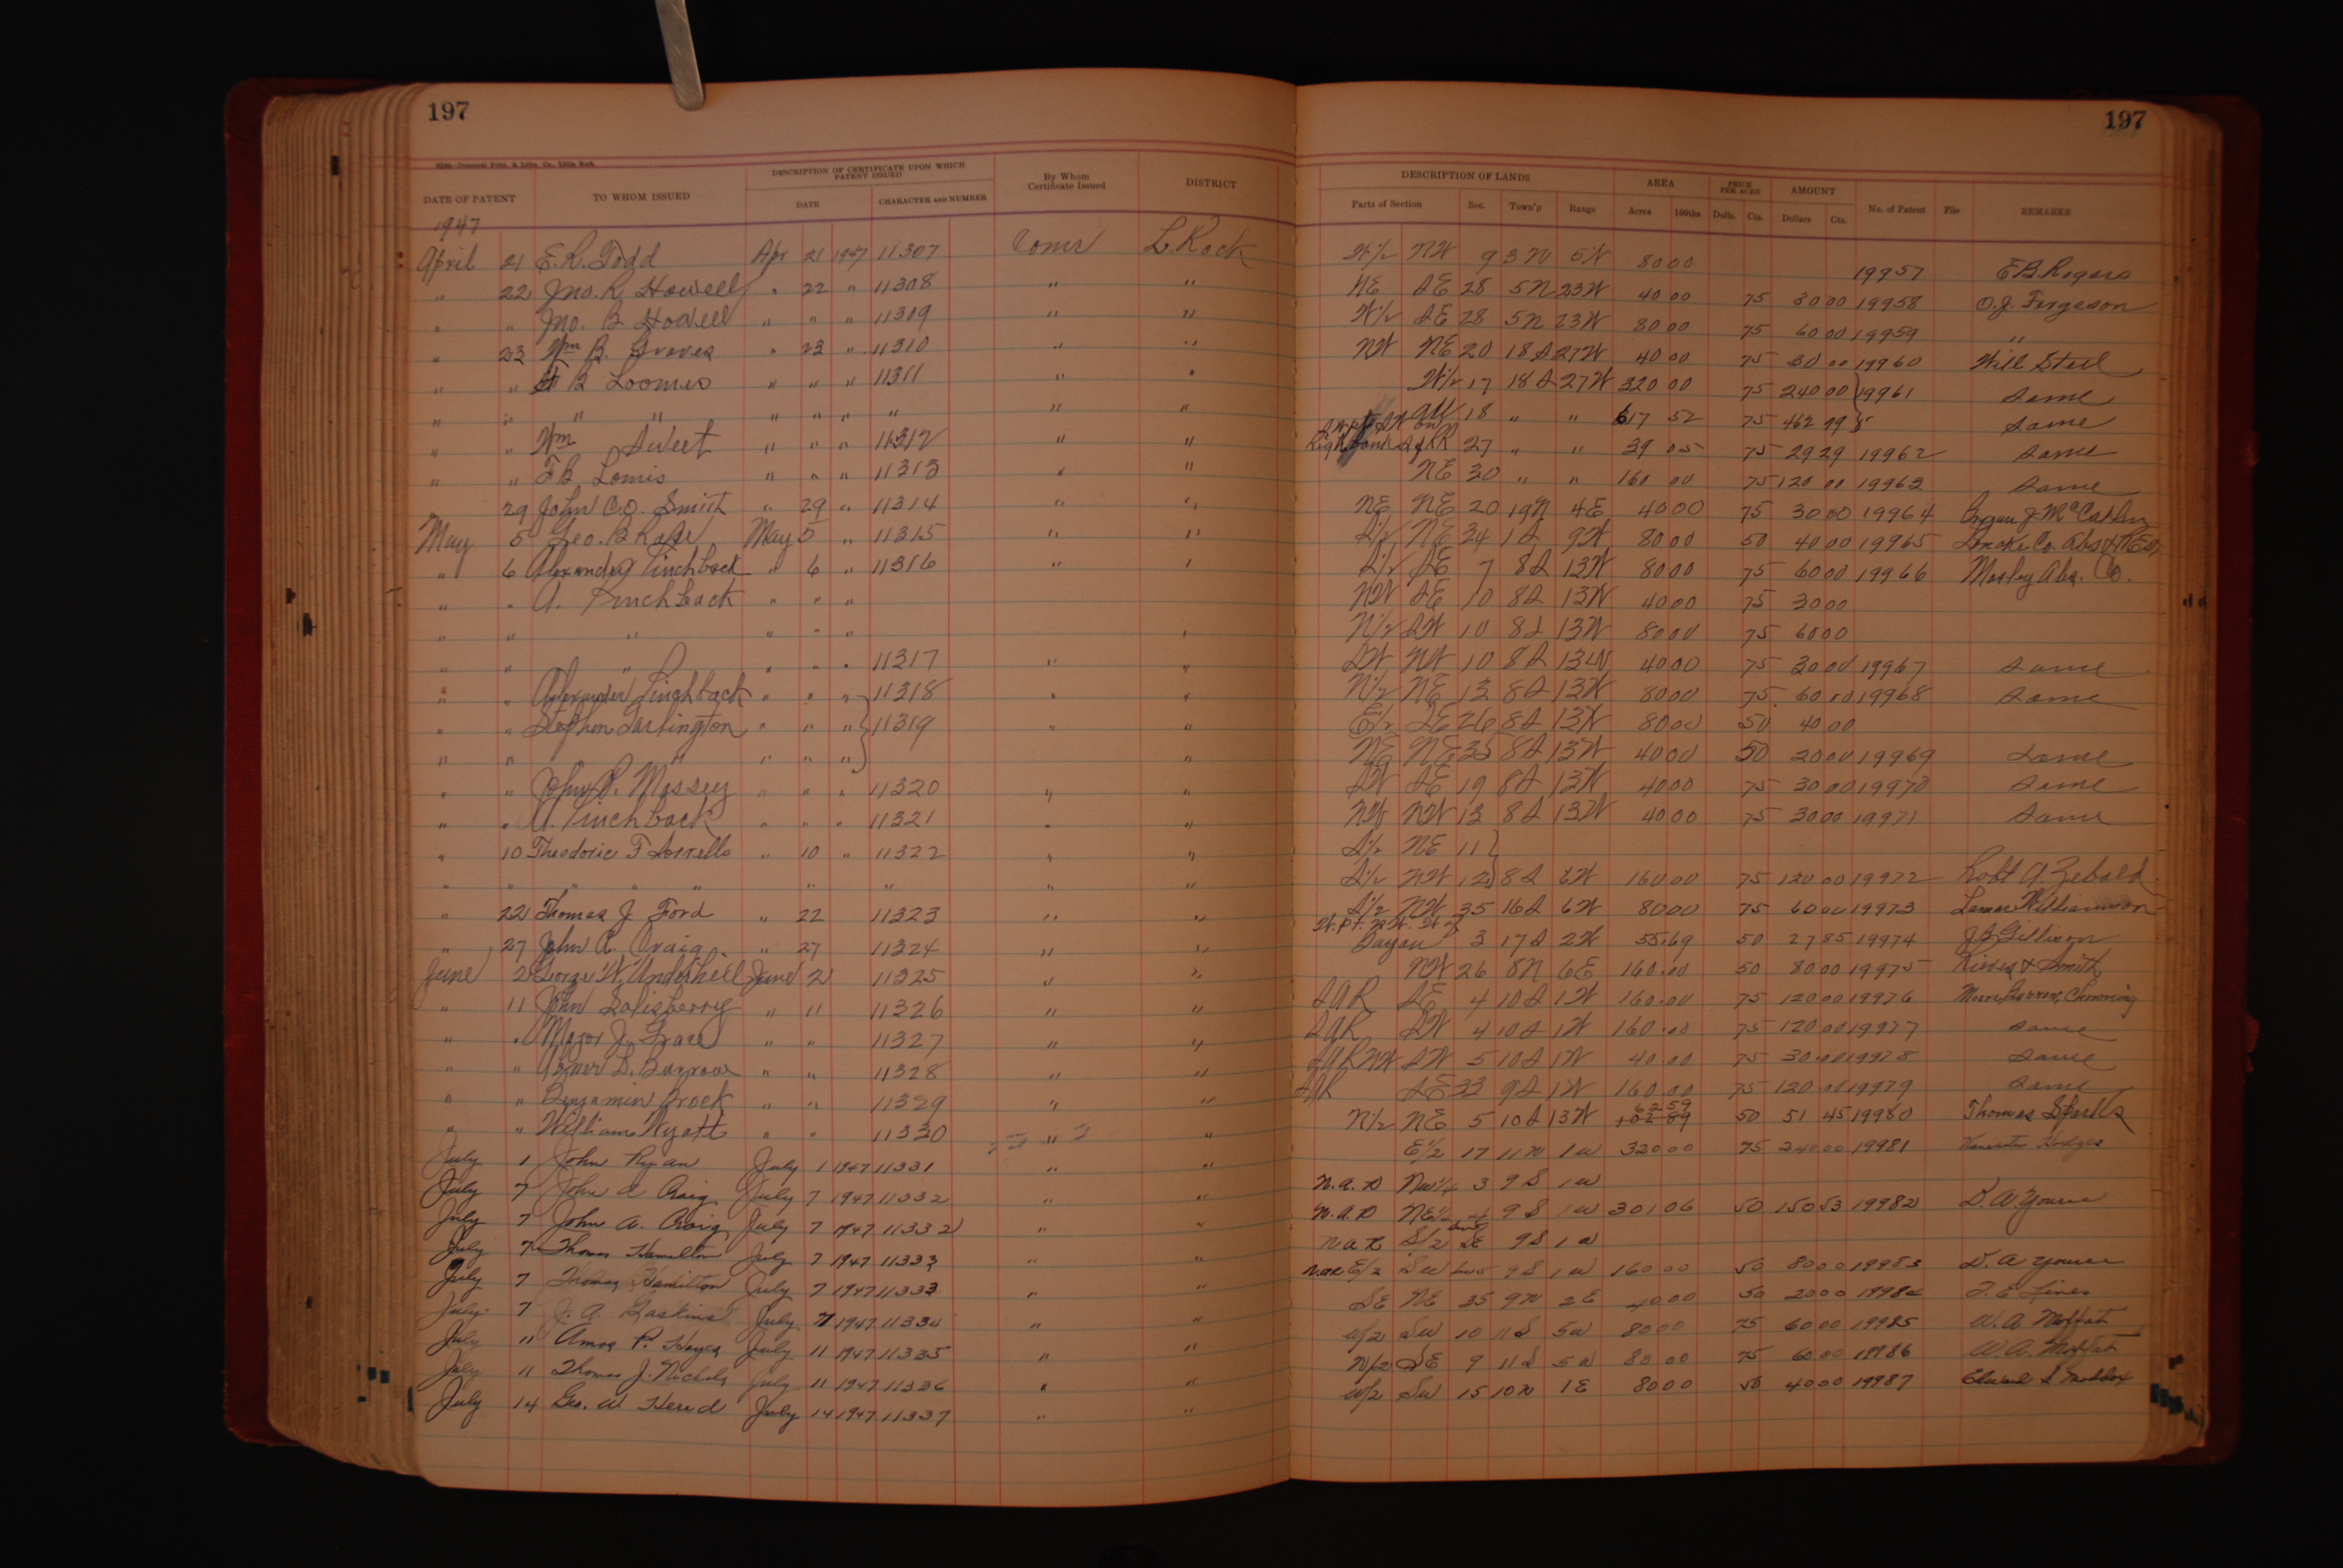 197
197
DATE OF PATENT TO WHOM ISSUED DESCRIPTION OF CERTIFICATE UPON WHICH PATENT ISSUED By Whom Certificate Issued DISTRICT DESCRIPTION OF LANDS AREA PRICE PER ACRE AMOUNT No. of Patent File REMARKS
DATE CHARACTER AND NUMBER Parts of Section Sec. Town'p Range Acres 100ths Dolls. Cts. Dollars Cts.
1947
April 21 E.R. Todd Apr 21 1947 11307 Comr L. Rock W½ NW 9 3N 5W 80 00 19957 E.B. Rogers
" 22 Jno. R. Howell " 22 " 11308 " " NE SE 28 5N 23W 40 00 75 30 00 19958 O.J. Fergeson
" " Jno. B Howell " " " 11309 " " W½ SE 28 5N 23W 80 00 75 60 00 19959 "
" 23 Wm B. Graves " 23 " 11310 " " NW NE 20 18S 27W 40 00 75 30 00 19960 Will Steel
" " F B Loomis " " " 11311 " " W½ 17 18S 27W 320 00 75 240 00 19961 Same
" " " " " " " " " " All 18 " " 617 52 75 462 99 Same
" " Wm Sweet " " " 11312 " " 27 " " 39 05 75 29 29 19962 Same
" " F B Lomis " " " 11313 " " NE 30 " " 160 00 75 120 00 19963 Same
29 John C.O. Smith " 29 " 11314 " " NE NE 20 19N 4E 40 00 75 30 00 19964
May 5 Geo. B May 5 " 11315 " " S½ NE 34 1S 9W 80 00 50 40 00 19965 Lonoke Co. Abs
" 6 Alexander Pinchback " 6 " 11316 " " S½ SE 7 8S 13W 80 00 75 60 00 19966 Mosley Abs. Co.
" " A. Pinchback " " " NW SE 10 8S 13W 40 00 75 30 00
" " " " " " " N½ SW 10 8S 13W 80 00 75 60 00
" " " " " " 11317 " " SW NW 10 8S 13W 40 00 75 30 00 19967 Same
" " Alexander Pinchback " " " 11318 " " N½ NE 13 8S 13W 80 00 75 60 00 19968 Same
" " Stephen Tarlington " " " 11319 " " E½ SE 26 8S 13W 80 00 50 40 00
" " " " " " " NE NE 35 8S 13W 40 00 50 20 00 19969 Same
" " John P. Massey " " " 11320 " " SW SE 19 8S 13W 40 00 75 30 00 19970 Same
" " A. Pinchback " " " 11321 " " NW NW 13 8S 13W 40 00 75 30 00 19971 Same
" 10 Theodoric F Sorrells " 10 " 11322 " " S½ NE 11
" " " " " " " " " S½ NW 12 8S 6W 160 00 75 120 00 19972 Robt A. Zebold
" 22 Thomas J Ford " 22 11323 " " S½ NW 35 16S 6W 80 00 75 60 00 19973 Lamar Williamson
" 27 John A. Craig " 27 11324 " " Bayou 3 17S 2W 55.69 50 27 85 19974 J.B. Gillison
June 2 George W. Underhill June 2 11325 " " NW 26 8N 6E 160.00 50 80 00 19975 Rieves & Smith
" 11 John Salisberry " 11 11326 " " SAR SE 4 10S 1W 160.00 75 120 00 19976
" " Major J. Grace " " 11327 " " SAR SW 4 10S 1W 160.00 75 120 00 19977 Same
" " Abner D. Burrow " " 11328 " " SAR NW SW 5 10S 1W 40.00 75 30.00 19978 Same
" " Benjamin Brock " " 11329 " " SAR SE 33 9S 1W 160.00 75 120.00 19979 Same
" " William Wyatt " " 11330 " " N½ NE 5 10S 13W 50 51 45 19980 Thomas
July 1 John Ryan July 1 1947 11331 " " E½ 17 11N 1W 320 00 75 240 00 19981 Hodges
July 7 John A Craig July 7 1947 11332 " " N.A.R NW¼ 3 9S 1W
July 7 John A. Craig July 7 1947 11332 " " N.A.R NE¼ 4 9S 1W 301 06 50 150 53 19982 D. A. Youree
July 7 Thomas Hamilton July 7 1947 11333 " " NAR S/2 SE 9S 1W
July 7 Thomas Hamilton July 7 1947 11333 " " NAR E/2 SW 9S 1W 160 00 50 80 00 19983 D. A Youree
July 7 J. A. Gaskins July 7 1947 11334 " " SE NE 35 9N 2E 40 00 50 20 00 19984
July 11 Amos P. Hayes July 11 1947 11335 " " W/2 SW 10 11S 5W 80 00 75 60 00 19985 W. A. Moffatt
July 11 Thomas J. Nichols July 11 1947 11336 " " N/2 SE 9 11S 5W 80 00 75 60 00 19986 W. A. Moffatt
July 14 Geo. W Herrd July 14 1947 11337 " " W/2 SW 15 10N 1E 80 00 50 40 00 19987 Maddox